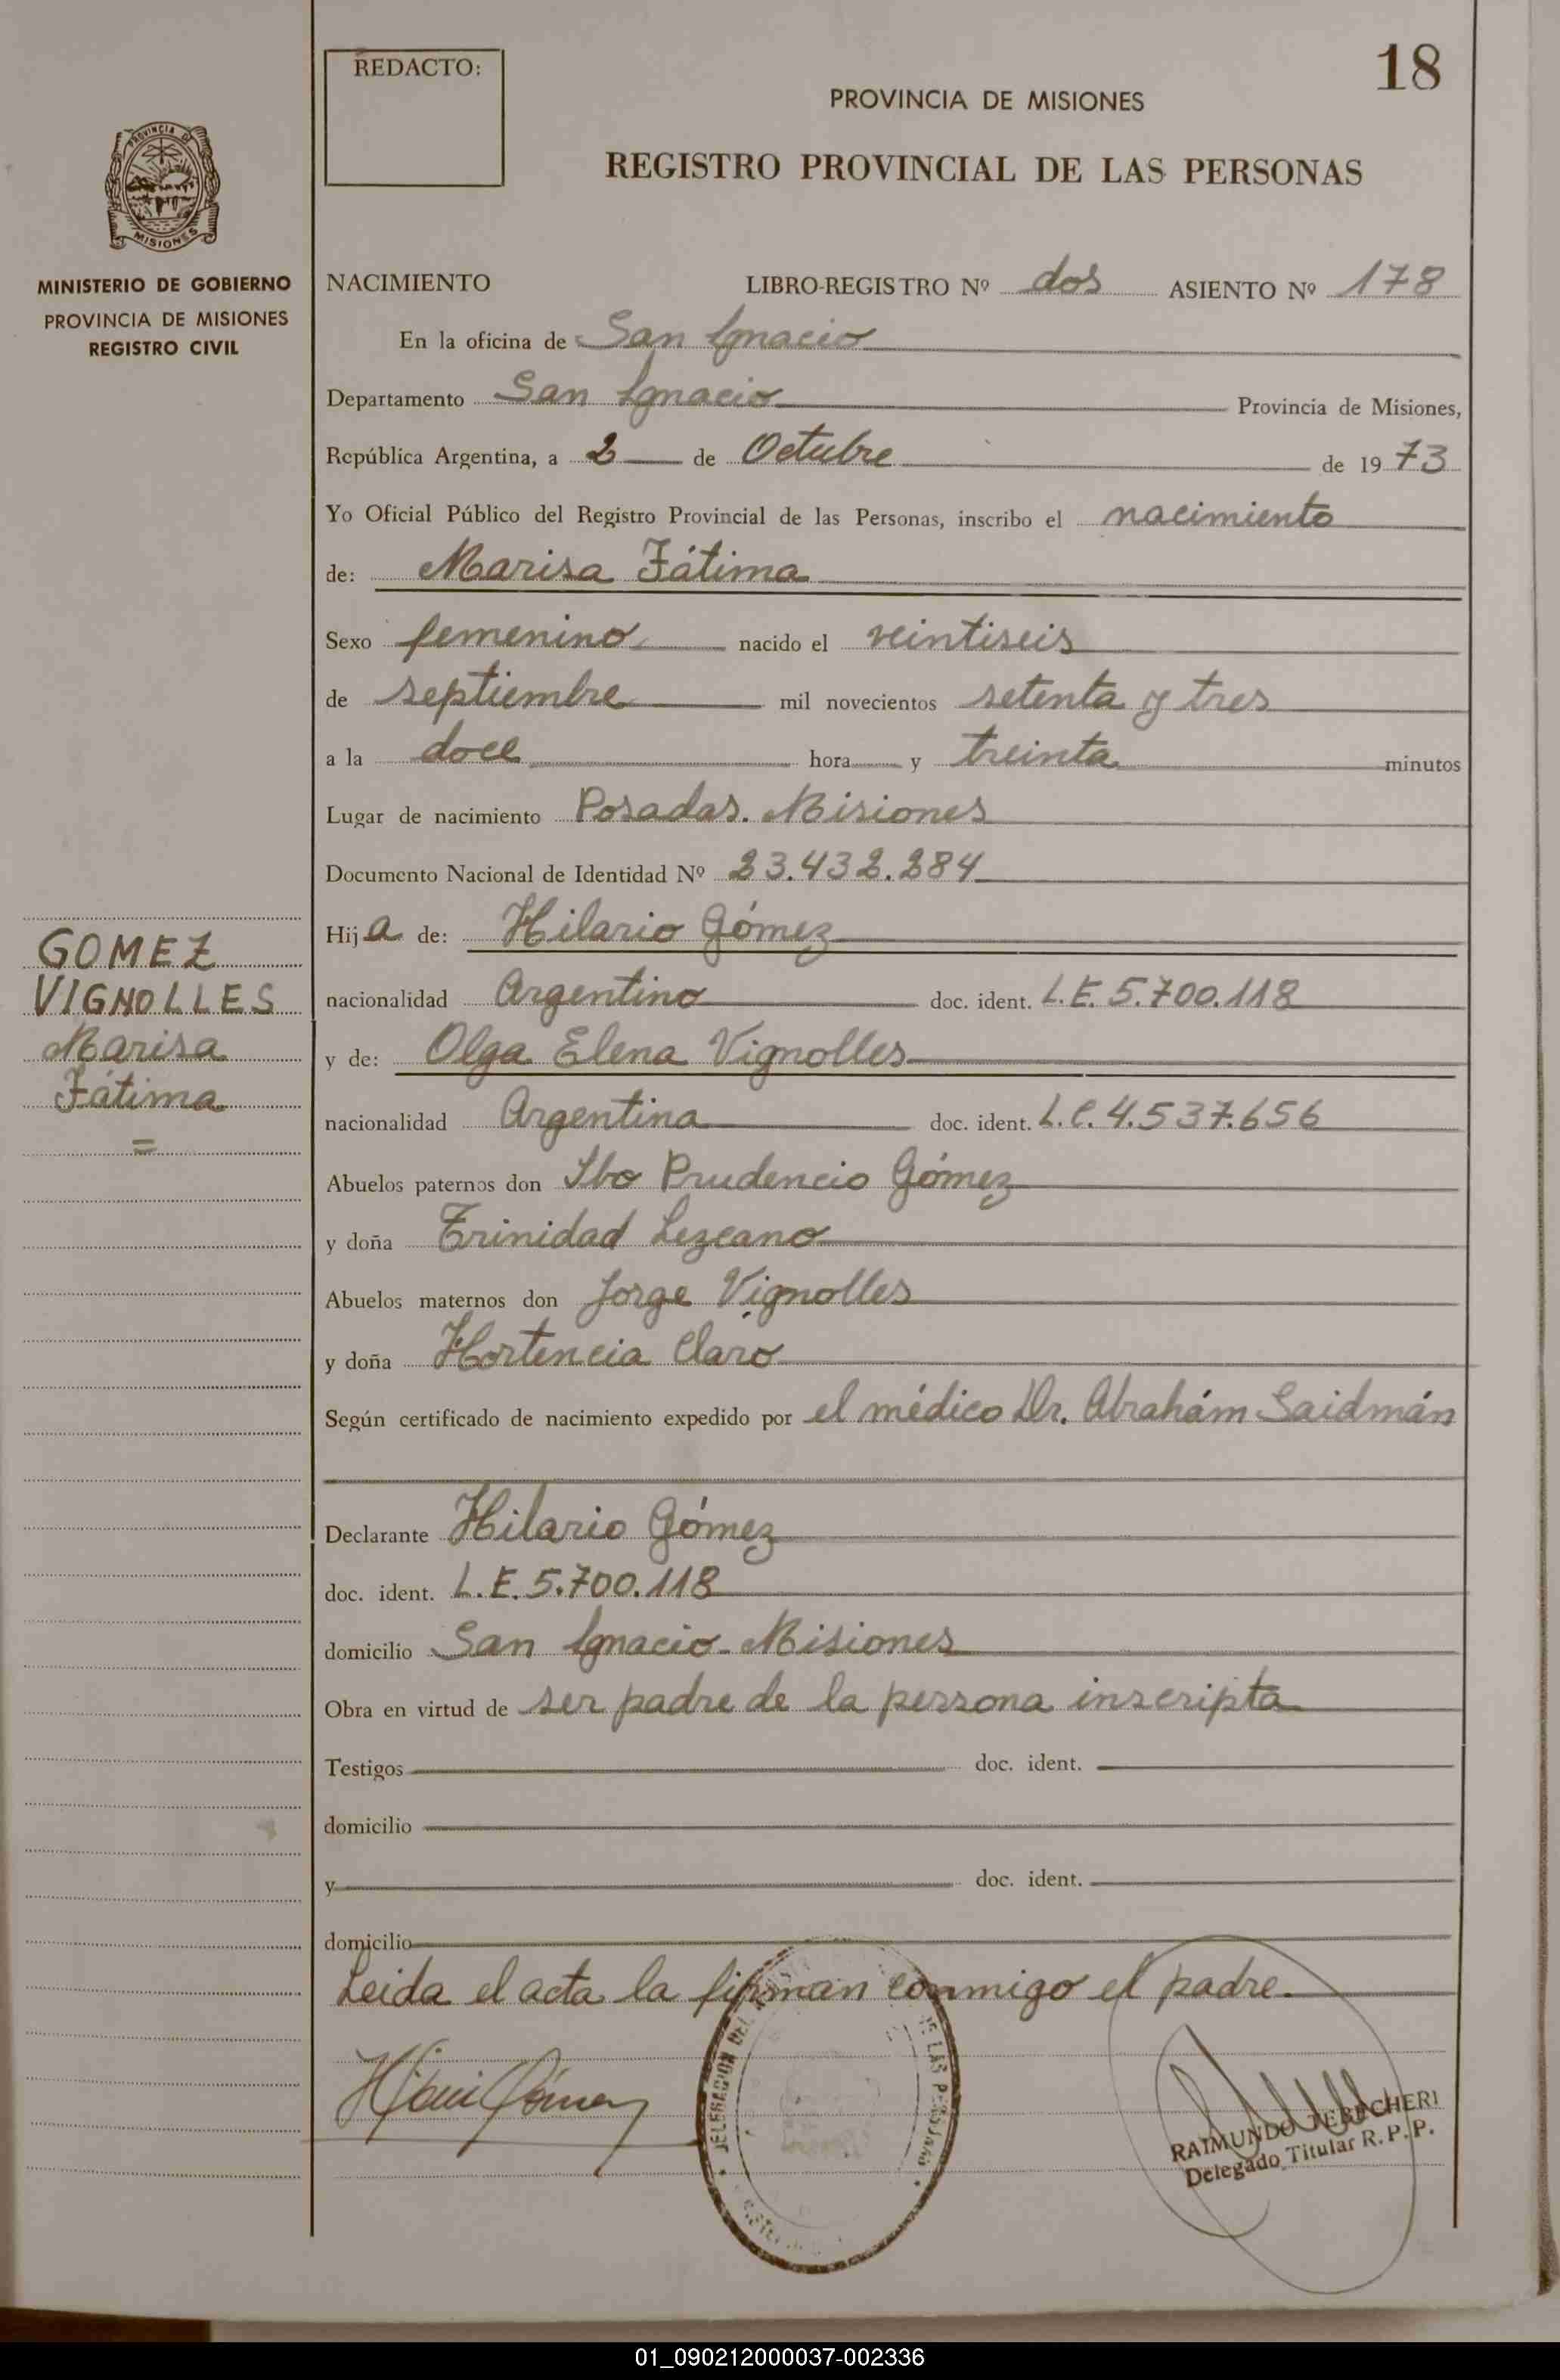 18
REDACTO:
PROVINCIA DE MISIONES
REGISTRO PROVINCIAL DE LAS PERSONAS
PROVINCIA DE
MISIONES
MINISTERIO DE GOBIERNO
PROVINCIA DE MISIONES
REGISTRO CIVIL
NACIMIENTO LIBRO-REGISTRO Nº dos ASIENTO Nº 178
En la oficina de San Ignacio
Departamento San Ignacio Provincia de Misiones,
República Argentina, a 2 de Octubre de 1973
Yo Oficial Público del Registro Provincial de las Personas, inscribo el nacimiento
de: Marisa Fátima
Sexo femenino nacido el veintiseis
de septiembre mil novecientos setenta y tres
a la doce hora y treinta minutos
Lugar de nacimiento Posadas. Misiones
Documento Nacional de Identidad Nº 23.432.284
GOMEZ
VIGNOLLES
Marisa
Fátima
=
Hija de: Hilario Gómez
nacionalidad Argentino doc. ident. L.E. 5.700.118
y de: Olga Elena Vignolles
nacionalidad Argentina doc. ident. L.C. 4.537.656
Abuelos paternos don Ibo Prudencio Gómez
y doña Trinidad Lezcano
Abuelos maternos don Jorge Vignolles
y doña Hortencia Claro
Según certificado de nacimiento expedido por el médico Dr. Abrahám Saidmán
Declarante Hilario Gómez
doc. ident. L.E. 5.700.118
domicilio San Ignacio - Misiones
Obra en virtud de ser padre de la persona inscripta
Testigos doc. ident.
domicilio
y doc. ident.
domicilio
Leida el acta la firman conmigo el padre.
DELEGACION DEL DE LAS PERSONAS
RAIMUNDO
Delegado Titular R. P. P.
01_090212000037-002336